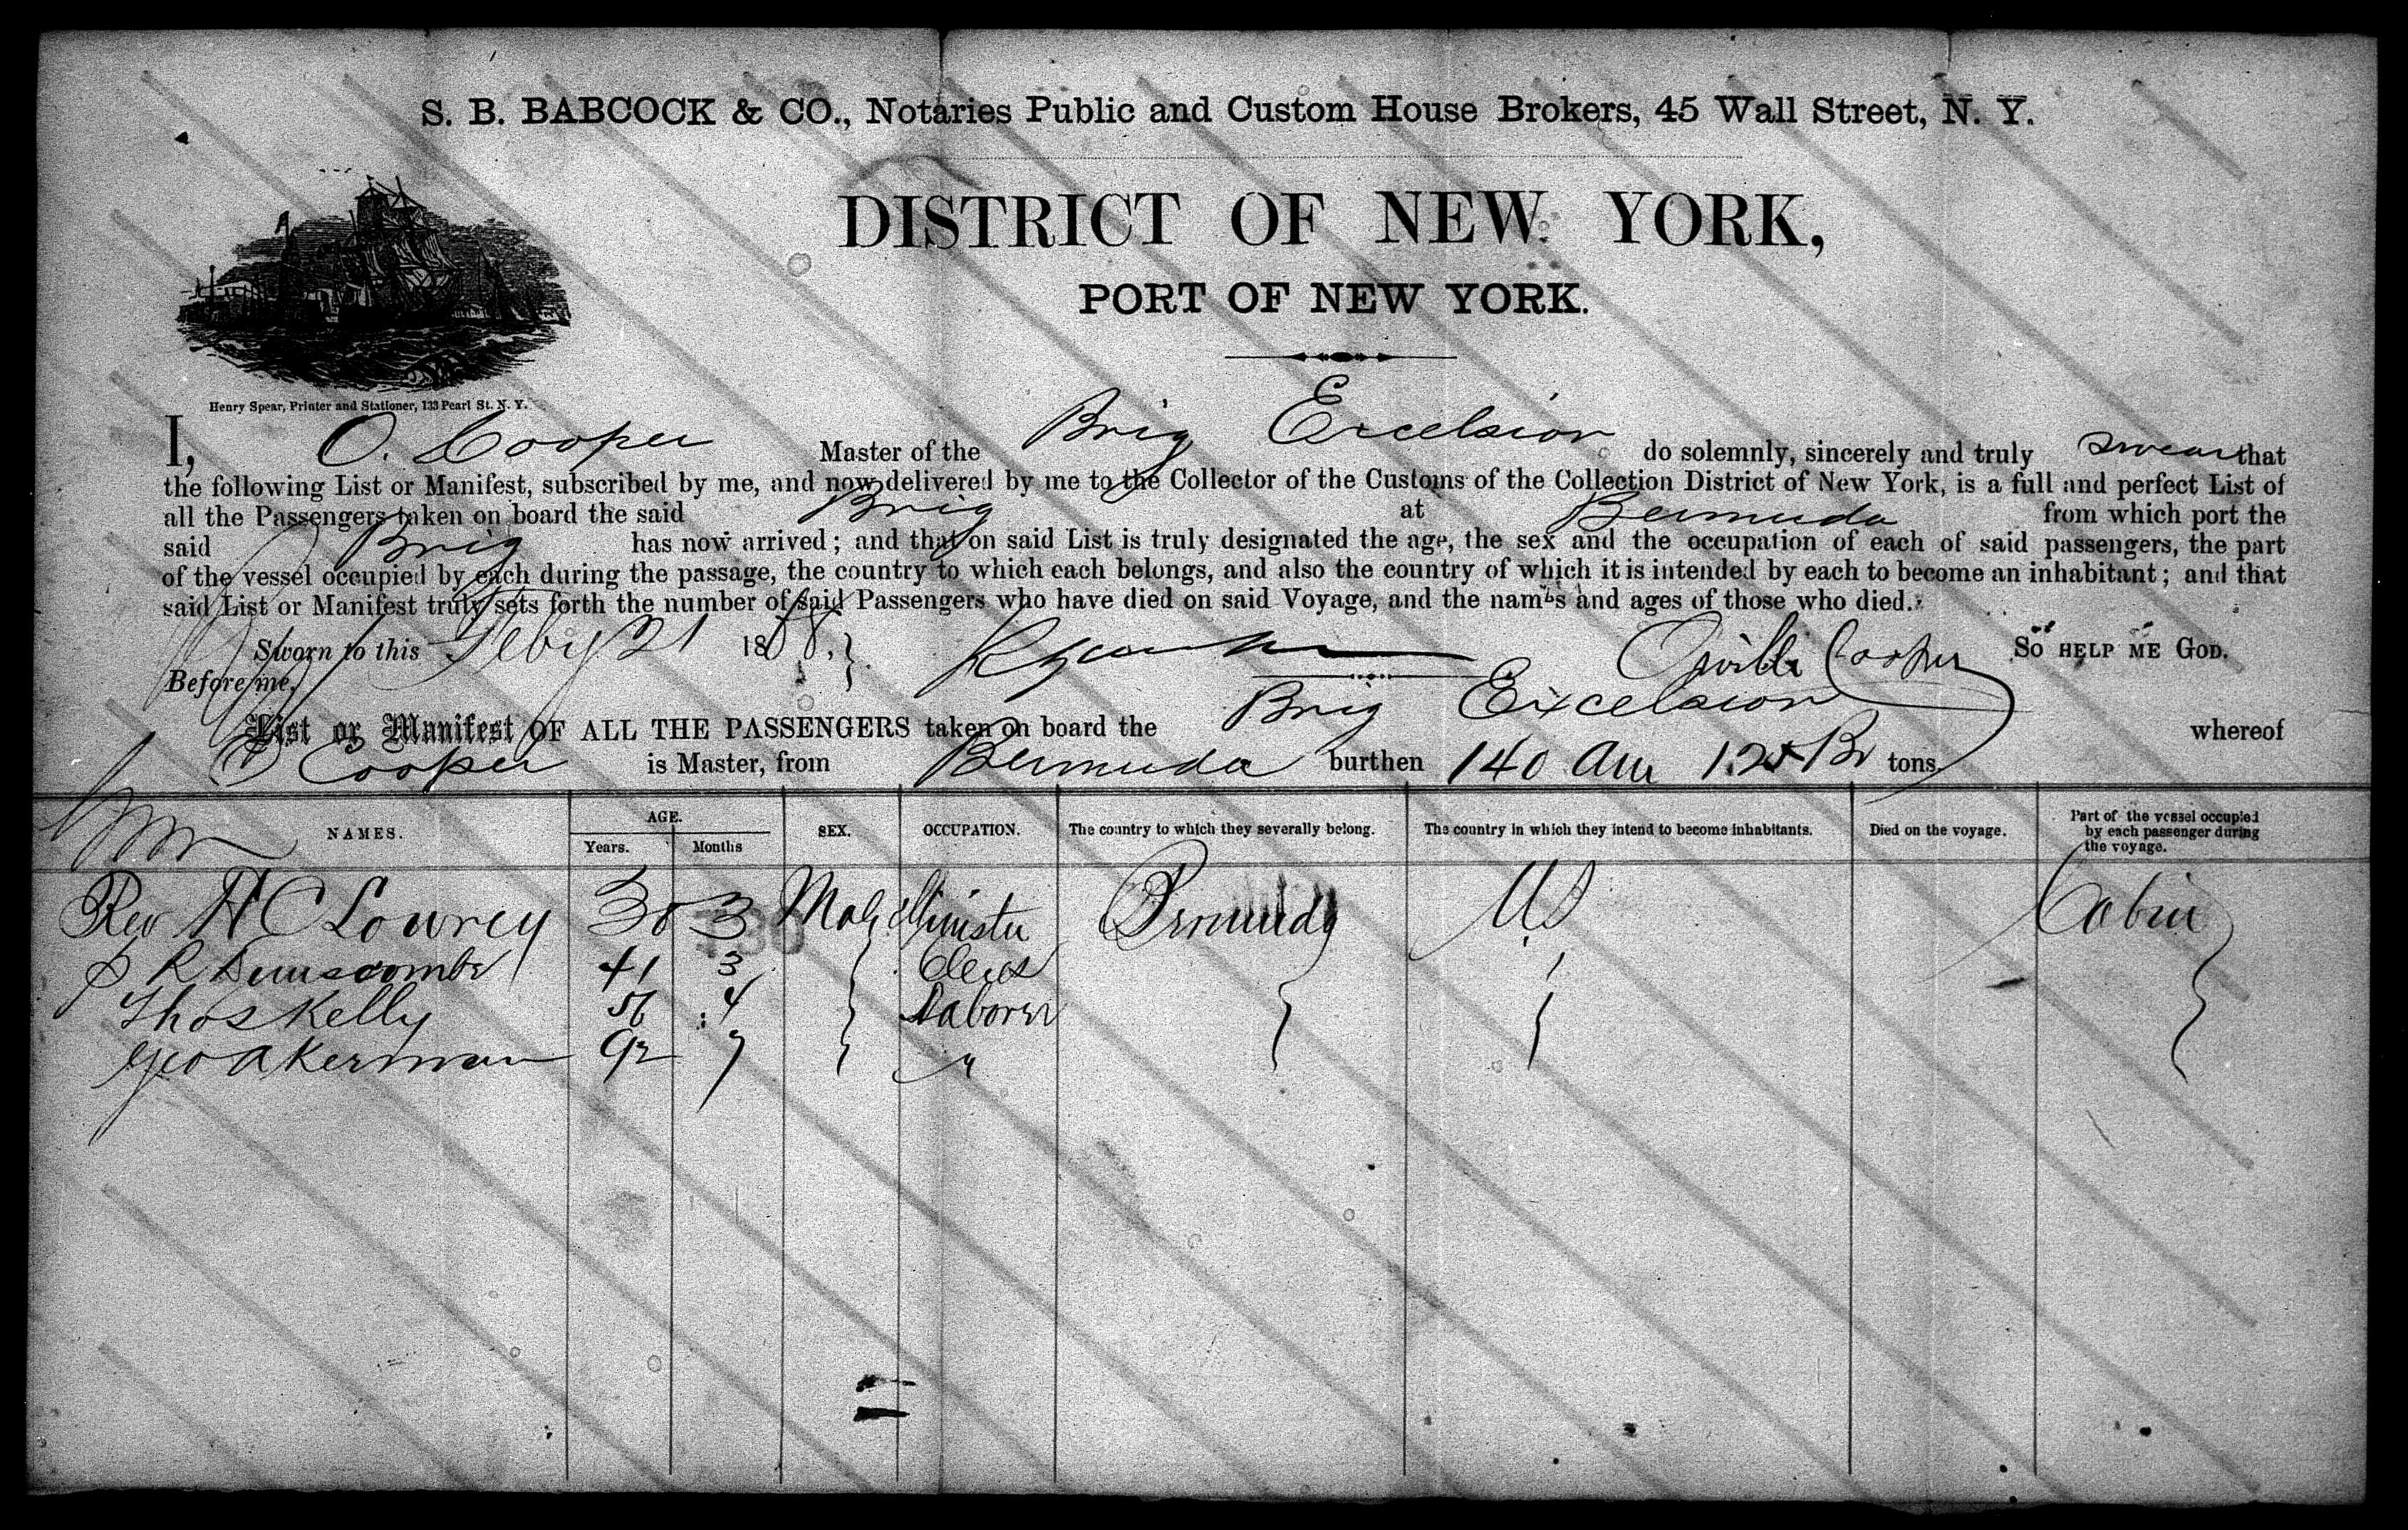 S. B. BABCOCK & CO., Notaries Public and Custom House Brokers, 45 Wall Street, N. Y.
DISTRICT OF NEW YORK,
PORT OF NEW YORK.
Henry Spear, Printer and Stationer, 133 Pearl St. N. Y.
I, O. Cooper Master of the Brig Excelsior do solemnly, sincerely and truly swear that
the following List or Manifest, subscribed by me, and now delivered by me to the Collector of the Customs of the Collection District of New York, is a full and perfect List of
all the Passengers taken on board the said Brig at Bermuda from which port the
said Brig has now arrived; and that on said List is truly designated the age, the sex and the occupation of each of said passengers, the part
of the vessel occupied by each during the passage, the country to which each belongs, and also the country of which it is intended by each to become an inhabitant; and that
said List or Manifest truly sets forth the number of said Passengers who have died on said Voyage, and the names and ages of those who died.
Sworn to this Feby 21 18 Orville Cooper SO HELP ME GOD.
Before me,
List or Manifest OF ALL THE PASSENGERS taken on board the Brig Excelsior whereof
O Cooper is Master, from Bermuda burthen 140 Am Br tons.
NAMES. AGE. Years. Months SEX. OCCUPATION. The country to which they severally belong. The country in which they intend to become inhabitants. Died on the voyage. Part of the vessel occupied by each passenger during the voyage.
Rev H C Lowrey 30 3 Male Minister Bermuda US Cabin
R Dunscombe 41 3
Thos Kelly 56 4 Laborer
Geo Akerman 7 "